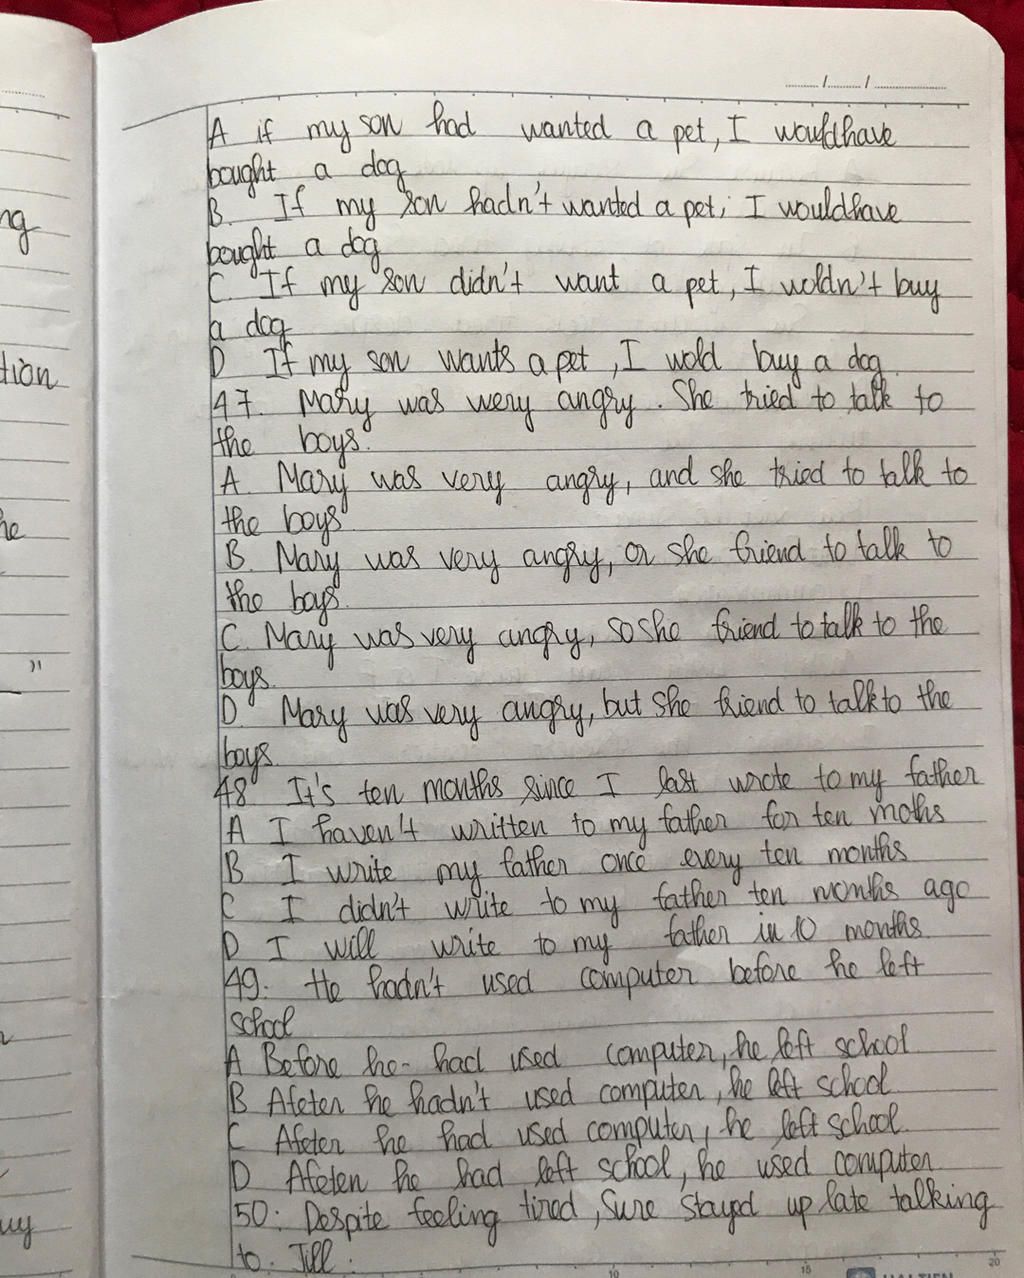 ng
tion
he
"
uy
....../....../..................
A if my son had wanted a pet, I would have
bought a dog
B. If my son hadn't wanted a pet, I would have
bought a dog
C. If my son didn't want a pet, I woldn't buy
a dog
D If my son wants a pet, I wold buy a dog.
47. Mary was wery angry. She tried to talk to
the boys.
A. Mary was very angry, and she tried to talk to
the boys
B. Mary was very angry, or she friend to talk to
the boys.
C. Mary was very angry, so she friend to talk to the
boys.
D. Mary was very angry, but she friend to talk to the
boys.
48. It's ten months since I last wrote to my father
A I haven't written to my father for ten moths
B I write my father once every ten months
C I didn't write to my father ten months ago
D I will write to my father in 10 months.
49. He hadn't used computer before he left
school
A Before he- had used computer, he left school
B Afeter he hadn't used computer, he left school
C Afeter he had used computer, he left school.
D Afeter he had left school, he used computer
50: Despite feeling tired, Sure stayed up late talking
to. Jill.
10 15 20